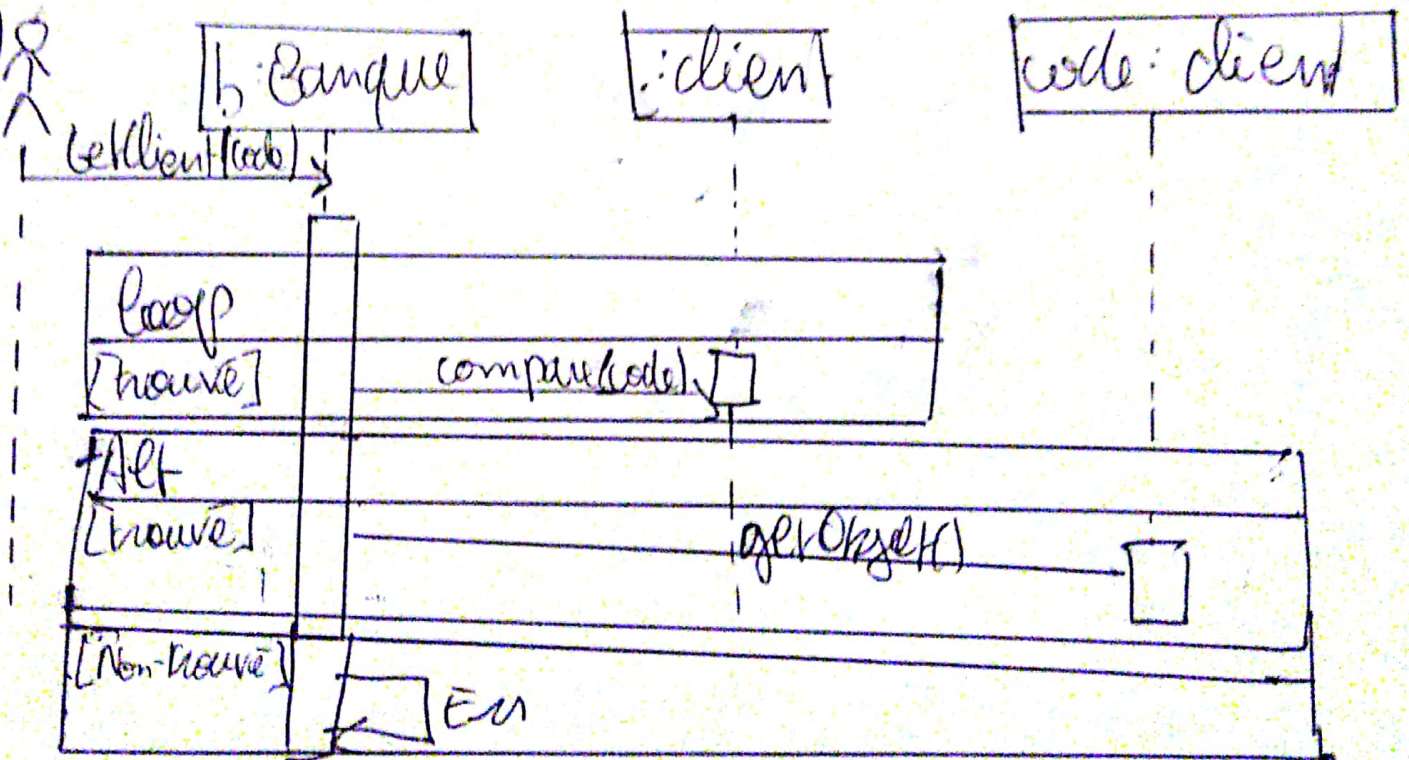 b:Banque
:client
code: client
GetClient(code)
loop
[trouvé]
compare(code)
Alt
[trouvé]
getObjet()
[Non-trouvé]